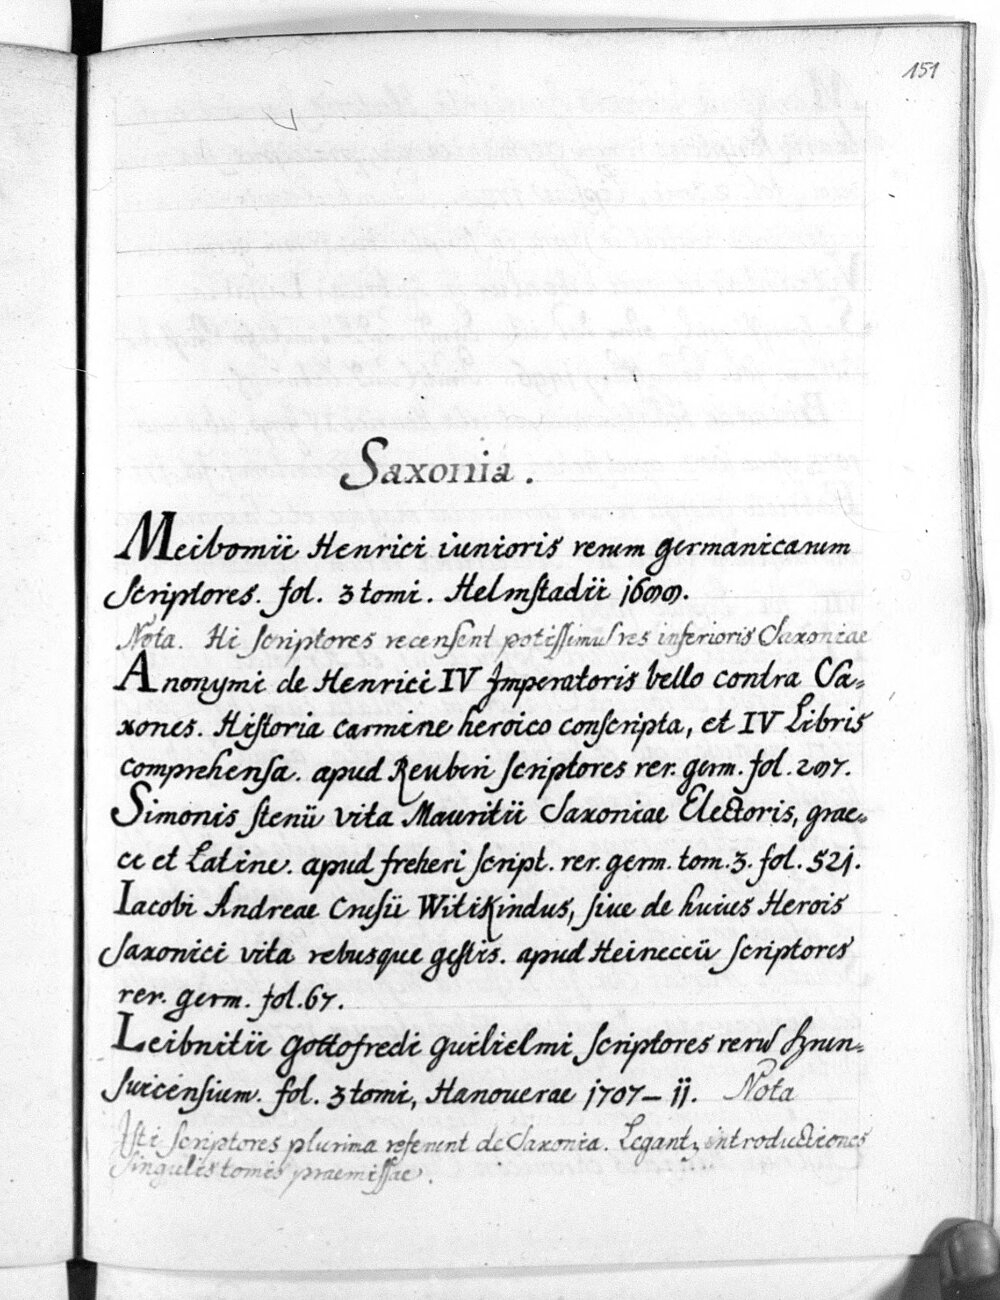 151
Saxonia.
Meibomii Henrici iunioris rerum germanicarum
scriptores. fol. 3 tomi. Helmstadii 1699.
Nota. Hi scriptores recensent potissimus res inferioris Saxoniae
Anonymi de Henrici IV Imperatoris bello contra Sa-
xones. Historia carmine heroico conscripta, et IV Libris
comprehensa. apud Reuberi scriptores rer. germ. fol. 297.
Simonis stenii vita Mauritii Saxoniae Electoris, grae-
ce et Latine. apud freheri script. rer. germ. tom. 3. fol. 521.
Iacobi Andreae Crusii Witikindus, siue de huius Herois
saxonici vita rebusque gestis. apud Heineccii scriptores
rer. germ. fol. 67.
Leibnitii gottofredi guilielmi scriptores rerū Brun-
suicensium. fol. 3 tomi, Hanouerae 1707-11. Nota
Isti scriptores plurima referent de Saxonia. Legant introductiones
singulis tomis praemissae.